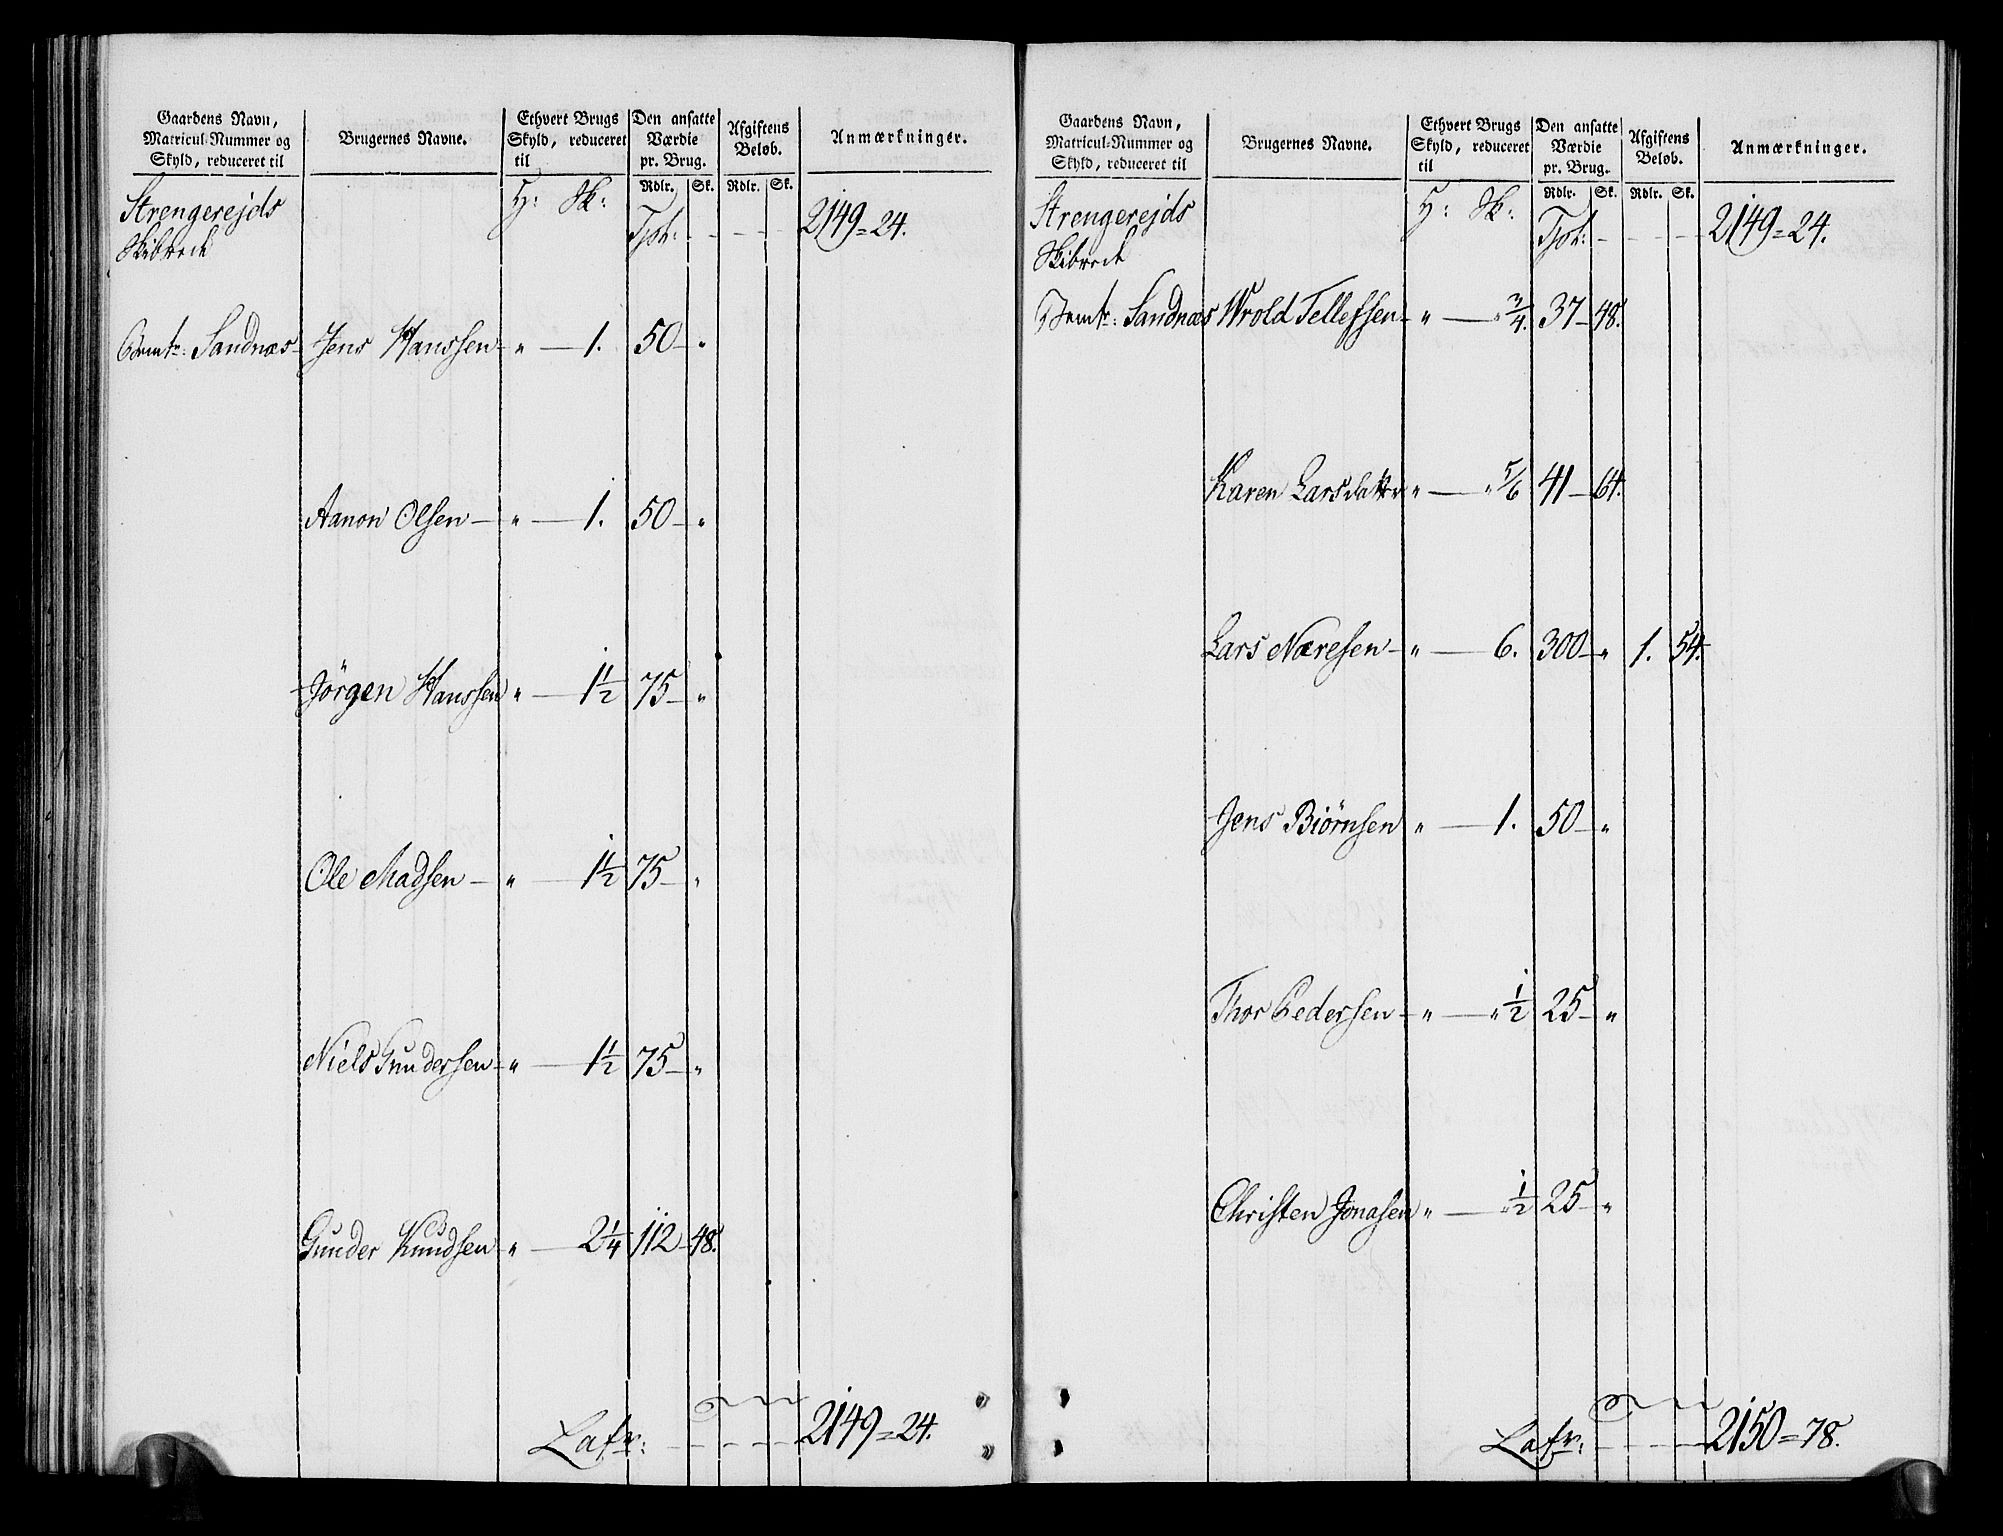 Gaardens Navn, Matricul-Nummer og Skyld, reduceret til
Brugernes Navne.
Ethvert Brugs Skyld, reduceret til
Den ansatte Værdie pr. Brug.
Afgiftens Beløb.
Anmærkninger.
Rdlr. Sk. Rdlr. Sk.
Strengerejds H: Sk:
Skibrede Tpt: 2149 = 24.
Sandnæs Jens Hanssen " 1. 50 "
Aanon Olsen " 1. 50 "
Jörgen Hanssen " 1½ 75 "
Ole Madsen " 1½ 75 "
Niels Gundersen " 1½ 75 "
Gunder Knudsen " 2¼ 112 48.
Latr: 2149 = 24.
Gaardens Navn, Matricul-Nummer og Skyld, reduceret til
Brugernes Navne.
Ethvert Brugs Skyld, reduceret til
Den ansatte Værdie pr. Brug.
Afgiftens Beløb.
Anmærkninger.
Rdlr. Sk. Rdlr. Sk.
Strengerejds H: Sk:
Skibrede Tpt: 2149 = 24.
Sandnæs Wrold Tellefsen " " ¾. 37 48.
Karen Larsdatter " " 5/6 41 64.
Lars Næresen " 6. 300 " 1. 54.
Jens Biörnsen " 1. 50 "
Thor Pedersen " " ½ 25 "
Christen Jonasen " " ½ 25 "
Latr: 2150 = 78.